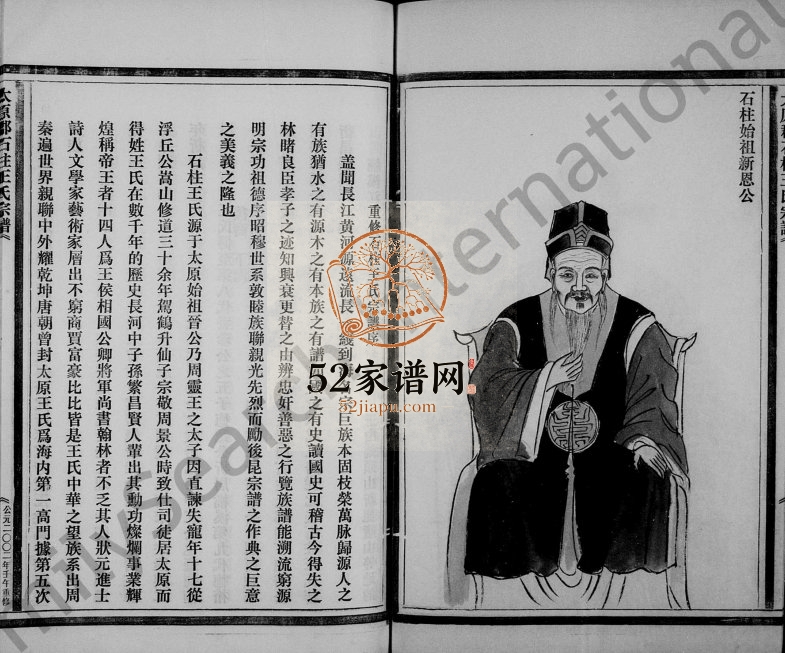 石柱始祖新恩公
太原郡石柱王氏宗譜
重修石柱王氏宗譜序
蓋聞長江黄河源遠流長
宗巨族本固枝榮萬脉歸源人之
有族猶水之有源木之有本族之有譜
之有史讀國史可稽古今得失之
林睹良臣孝子之迹知興衰更替之由辨忠奸善惡之行覽族譜能溯流窮源
明宗功祖德序昭穆世系敦睦族聯親光先烈而勵後昆宗譜之作典之巨意
之美義之隆也
石柱王氏源于太原始祖晉公乃周靈王之太子因直諫失寵年十七從
浮丘公嵩山修道三十余年駕鶴升仙子宗敬周景公時致仕司徒居太原而
得姓王氏在數千年的歷史長河中子孫繁昌賢人輩出其勳功燦爛事業輝
煌稱帝王者十四人爲王侯相國公卿將軍尚書翰林者不乏其人狀元進士
詩人文學家藝術家層出不窮商賈富豪比比皆是王氏中華之望族系出周
秦遍世界親聯中外耀乾坤唐朝曾封太原王氏爲海内第一高門據第五次
太原郡石柱王氏宗譜
公元二〇〇二年壬午重修
52家谱网
52jiapu.com
FamilySearch International